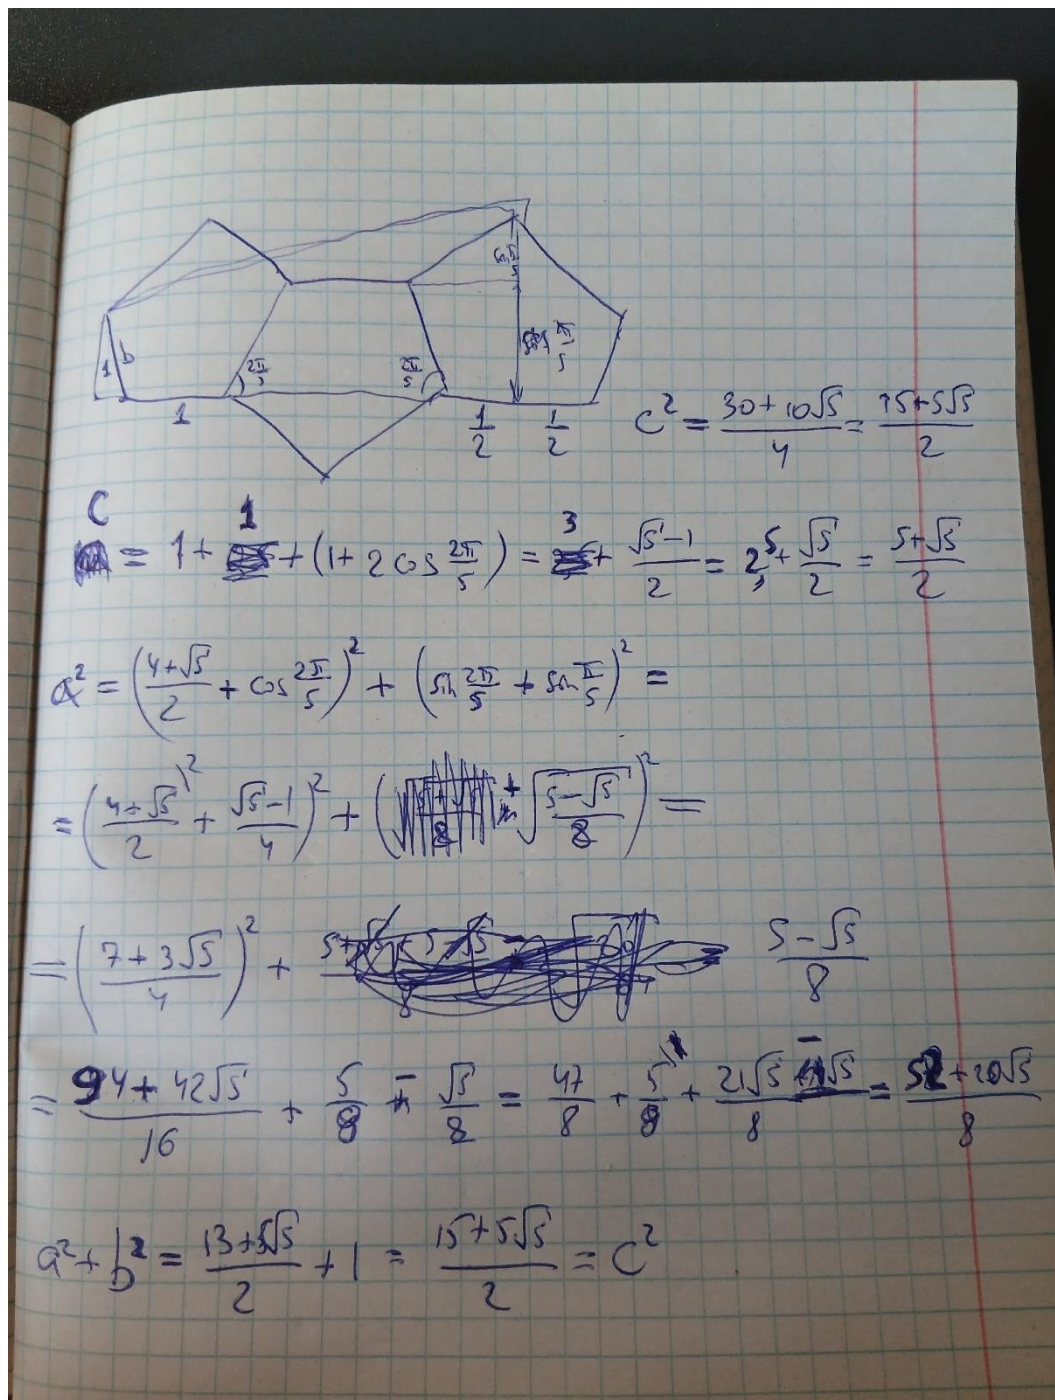 sin π/5
1 b 2π/5 2π/5 π/5
1 1/2 1/2
c² = (30+10√5)/4 = (15+5√5)/2
c = 1 + 1 + (1 + 2 cos 2π/5) = 3 + (√5-1)/2 = 2,5 + √5/2 = (5+√5)/2
a² = ((4+√5)/2 + cos 2π/5)² + (sin 2π/5 + sin π/5)² =
= ((4+√5)/2 + (√5-1)/4)² + (√((5-√5)/8))² =
= ((7+3√5)/4)² + (5-√5)/8
= (94+42√5)/16 + 5/8 - √5/8 = 47/8 + 5/8 + 21√5/8 - √5 = (52+20√5)/8
a² + b² = (13+5√5)/2 + 1 = (15+5√5)/2 = c²